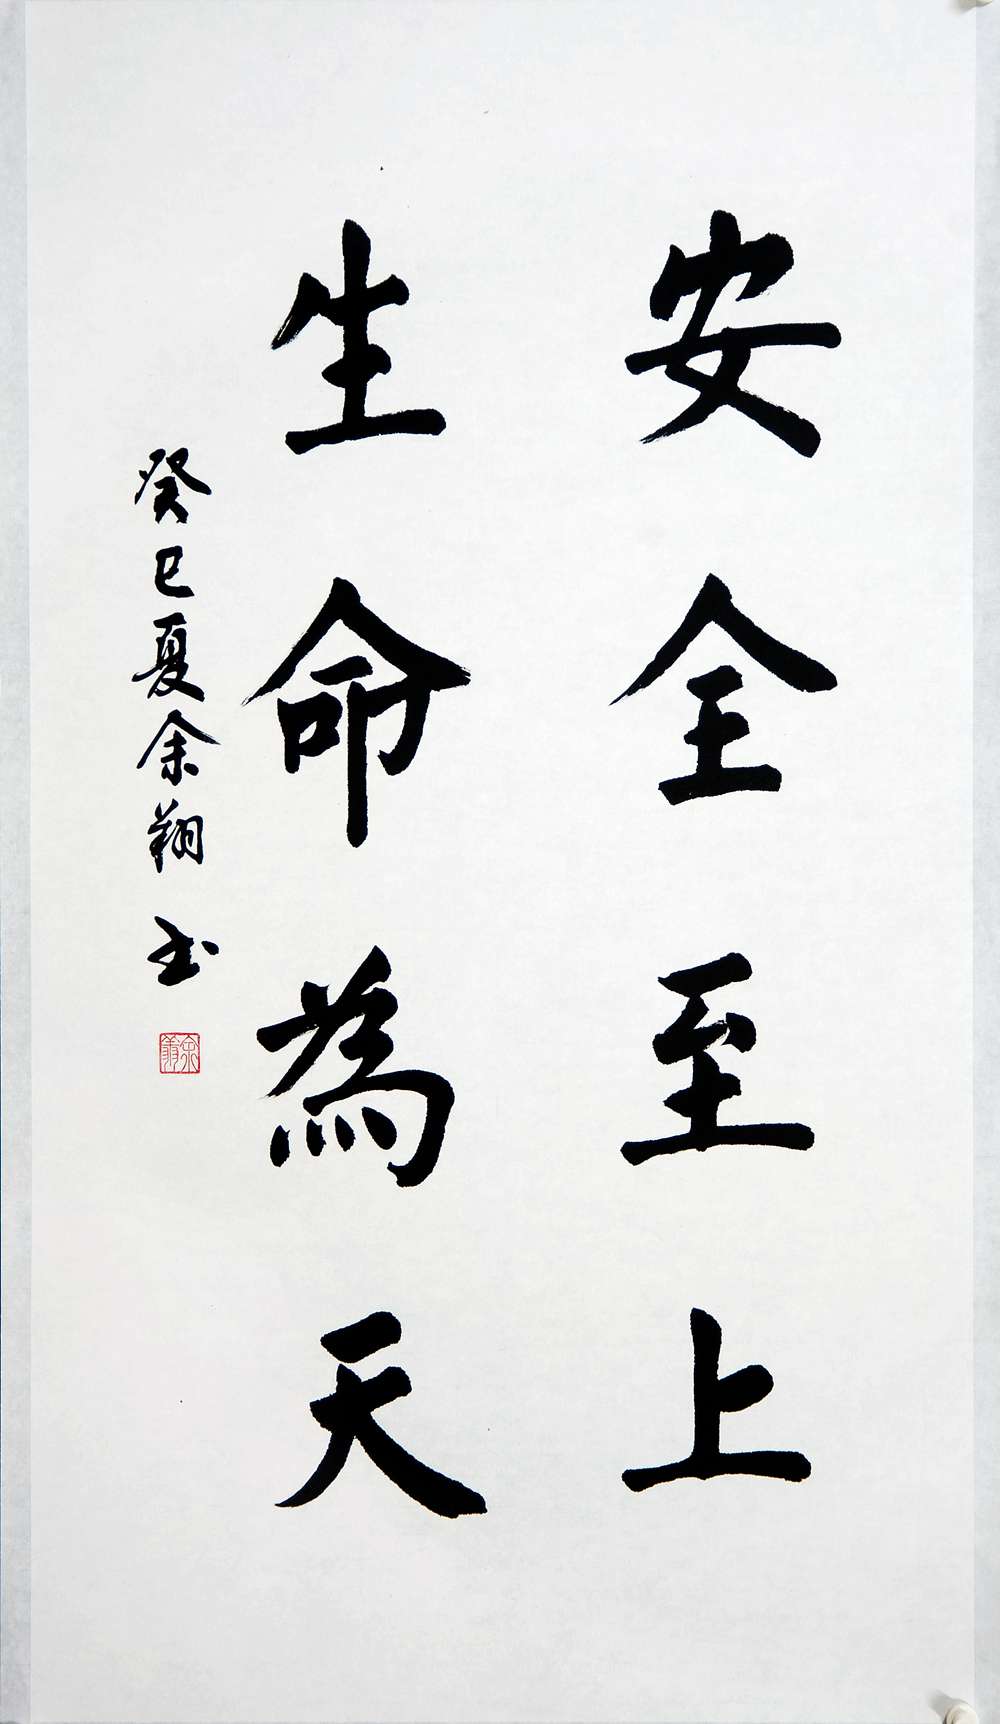 安全至上
生命為天
癸巳夏余翔书